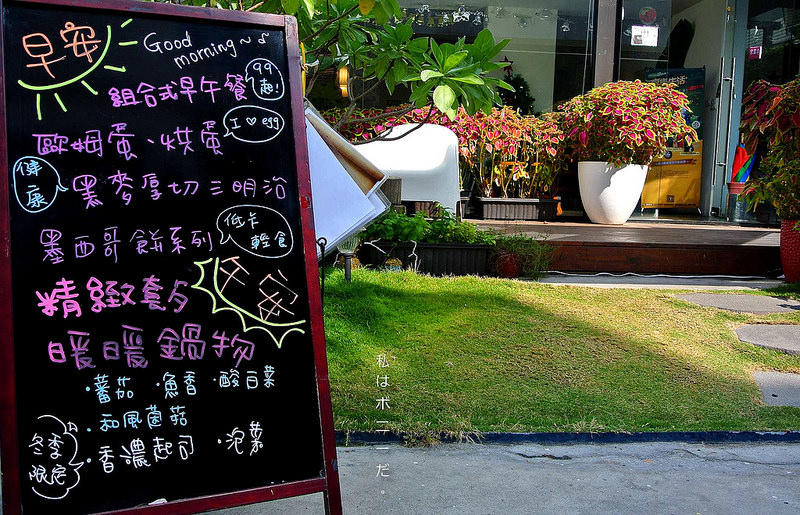 早安
Good
morning~
組合式早午餐
99
起!
I ♡ egg
歐姆蛋、烘蛋
健康
黑麥厚切三明治
墨西哥餅系列
低卡
輕食
精緻套夕
多多
暖暖鍋物
·蕃茄 ·魚香 ·酸白菜
·和風菌菇
·香濃起司 ·泡菜
冬季
限定
私はボニーだ。